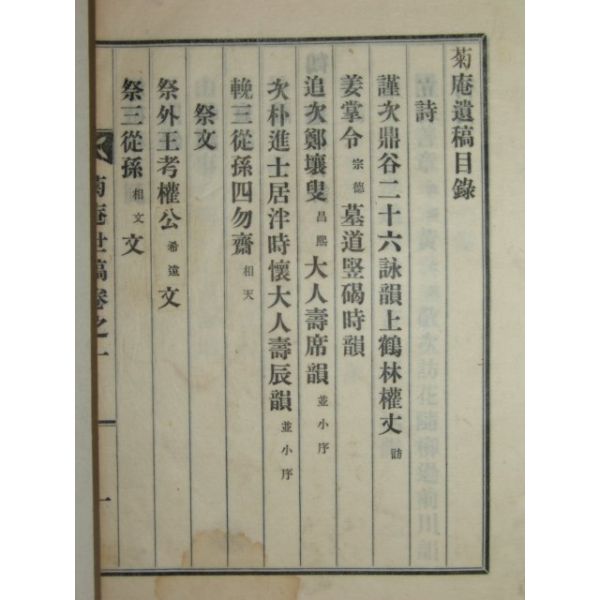 菊庵遺稿目錄
詩
謹次鼎谷二十六詠韻上鶴林權丈 訪
姜掌令 宗德 墓道竪碣時韻
追次鄭壤叟 昌熙 大人壽席韻 並小序
次朴進士居泮時懷大人壽辰韻 並小序
輓三從孫四勿齋 相天
祭文
祭外王考權公 希遠 文
祭三從孫 相文 文
菊庵世稿卷之一
一